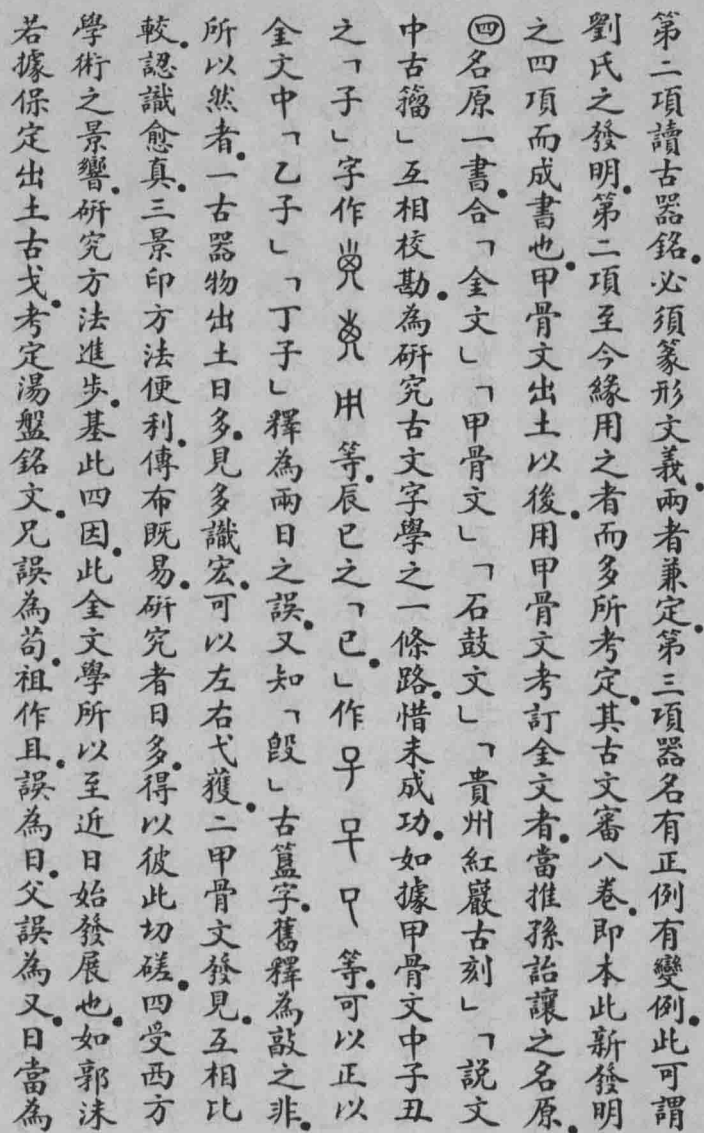 第二項讀古器銘。必須篆形文義。兩者兼定。第三項器名有正例有變例。此可謂
劉氏之發明。第二項至今緣用之者而多所考定。其古文審八卷。即本此新發明
之四項而成書也。甲骨文出土以後。用甲骨文考訂金文者。當推孫詒讓之名原。
㊃名原一書。合「金文」「甲骨文」「石鼓文」「貴州紅巖古刻」「說文
中古籀」互相校勘。為研究古文字學之一條路。惜未成功。如據甲骨文中子丑
之「子」字作等。辰巳之「巳。」作等。可以正以
金文中「乙子」「丁子」釋為兩日之誤。又知「𣪘」古簋字。舊釋為敲之非。
所以然者。一古器物出土日多。見多識宏。可以左右弋獲。二甲骨文發見。互相比
較。認識愈真。三景印方法便利。傳布既易。研究者日多。得以彼此切磋。四受西方
學術之景響。研究方法進步。基此四因。此金文學所以至近日始發展也。如郭沫
若據保定出土古戈。考定湯盤銘文。兄誤為苟。祖作且。誤為日。父誤為又。日當為